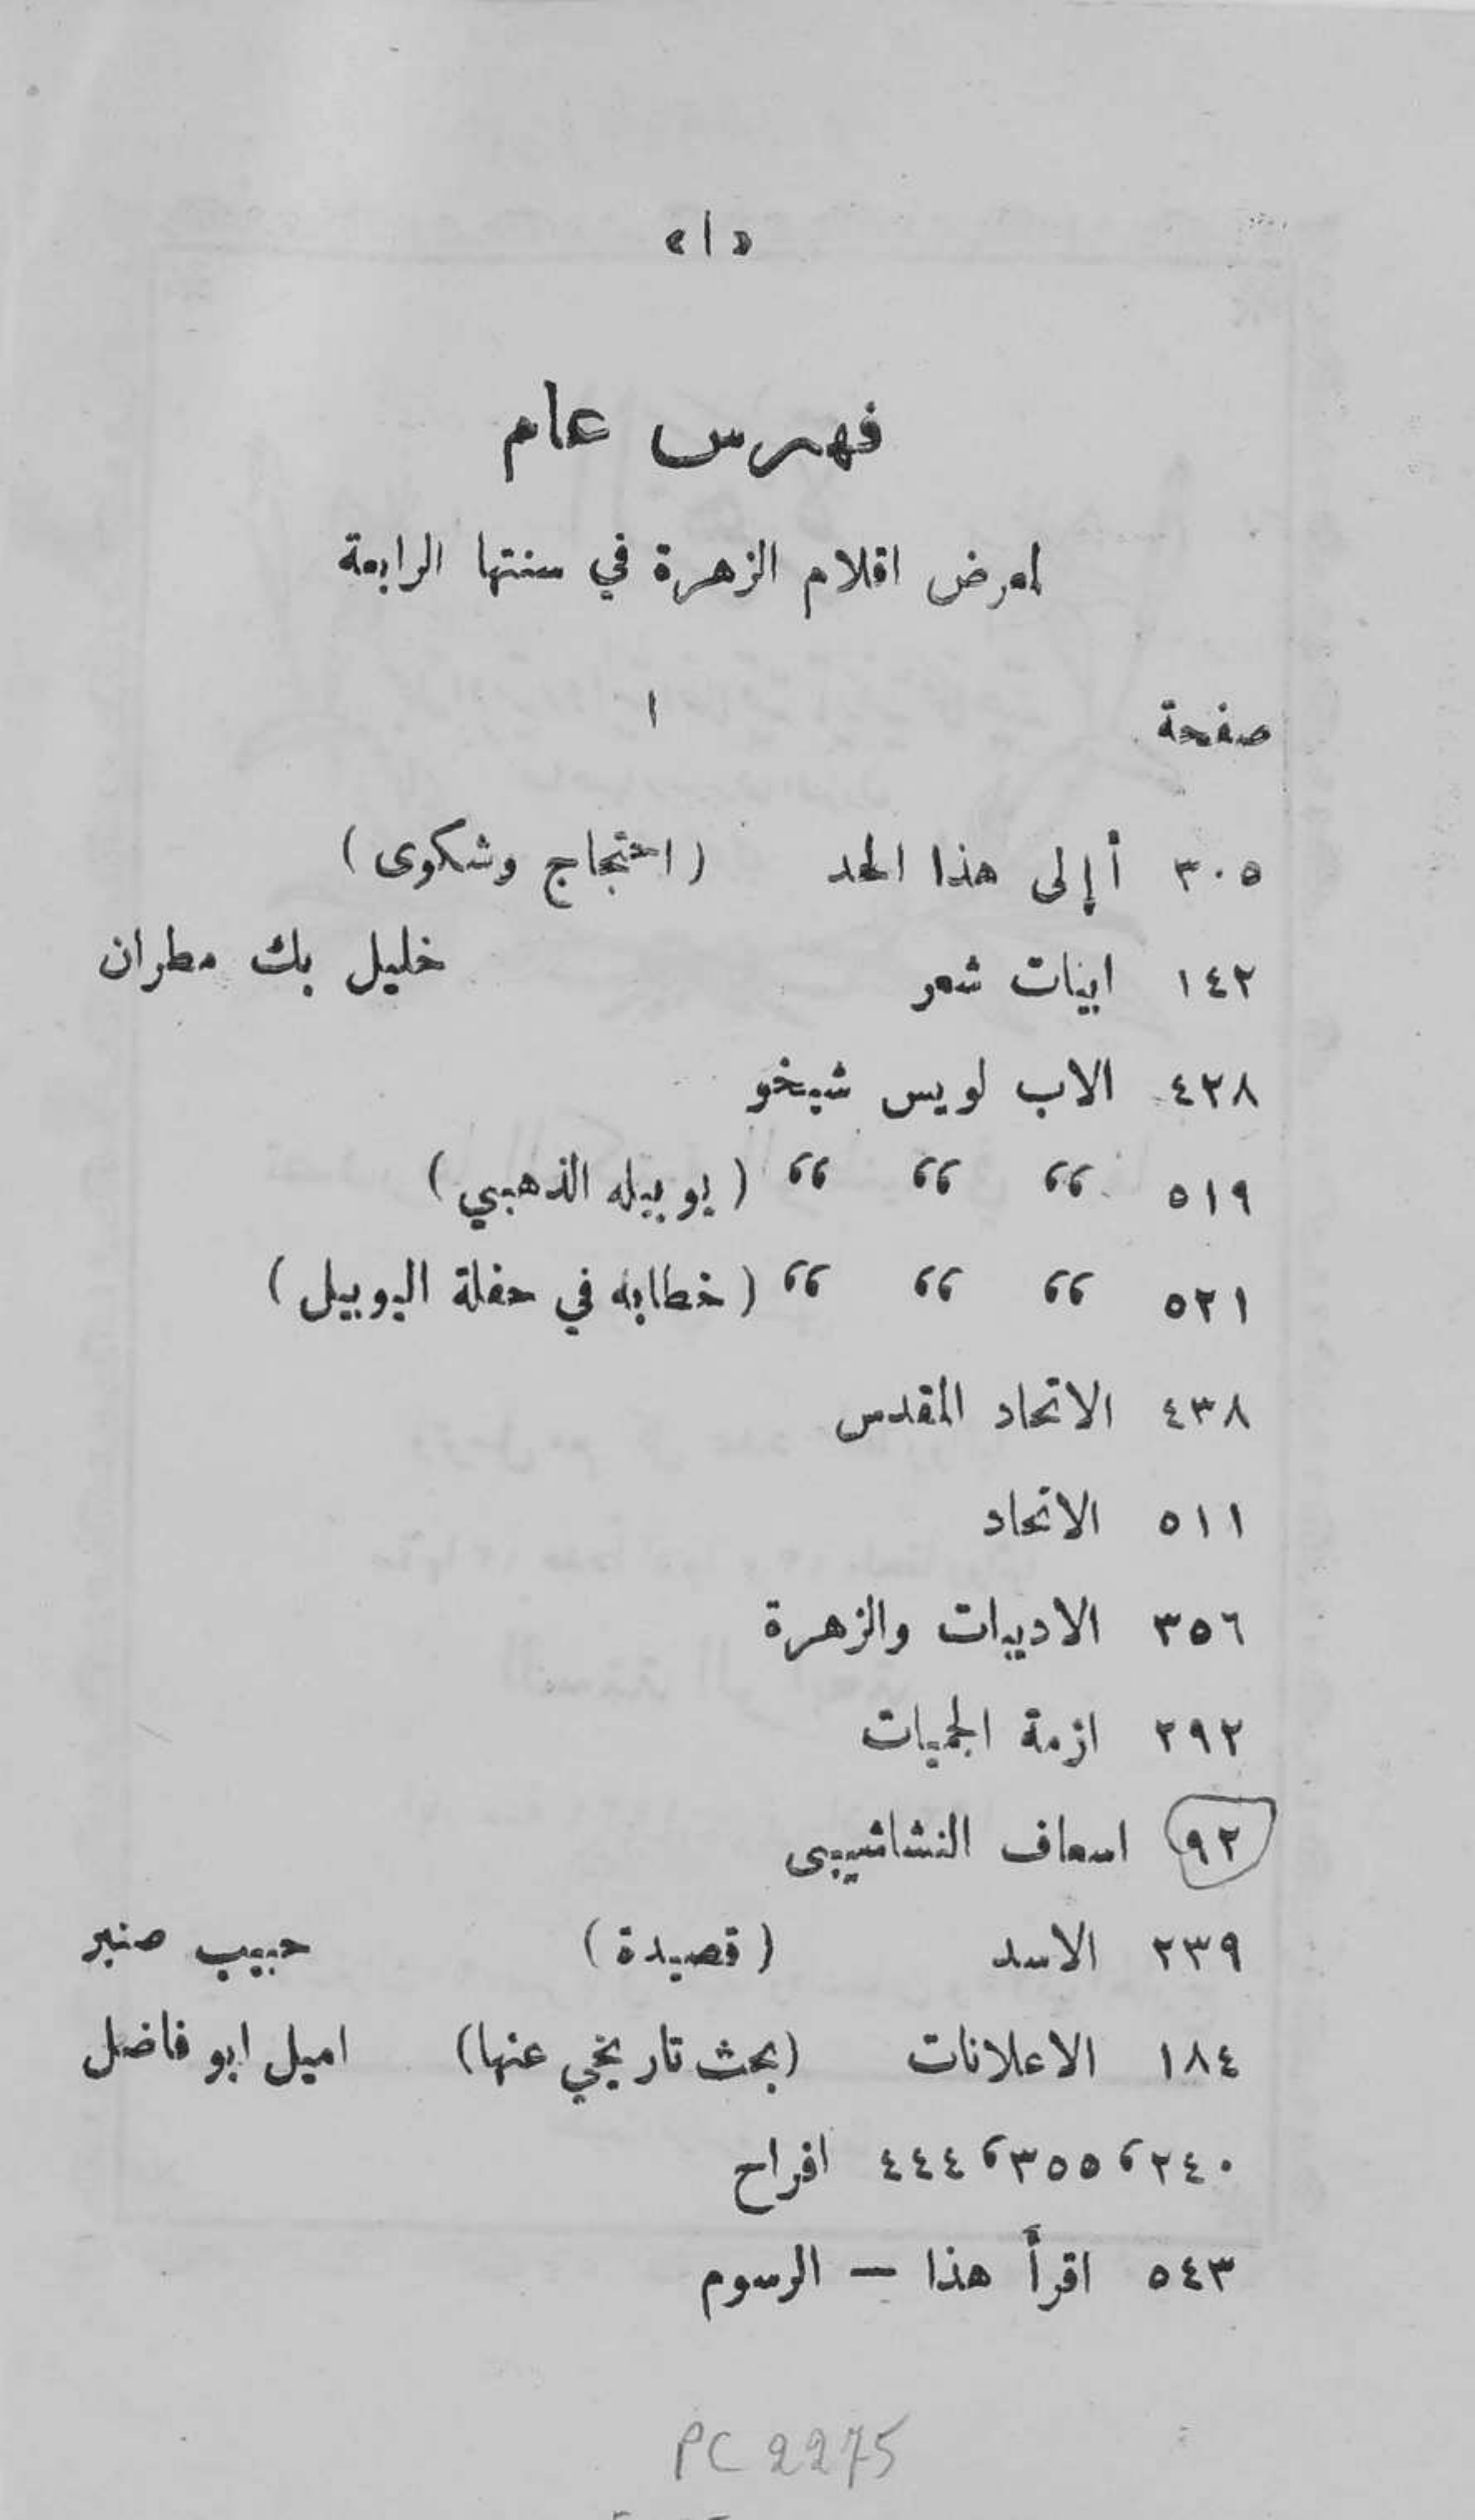 «١»
فهرس عام
لمعرض اقلام الزهرة في سنتها الرابعة
صفحة ا
٣٠٥ أإلى هذا الحد (احتجاج وشكوى)
١٤٢ ابيات شعر خليل بك مطران
٤٢٨ الاب لويس شيخو
٥١٩ “ “ “ (يوبيله الذهبي)
٥٢١ “ “ “ (خطابه في حفلة اليوبيل)
٤٣٨ الاتحاد المقدس
٥١١ الاتحاد
٣٥٦ الاديبات والزهرة
٢٩٢ ازمة الجميات
٩٢ اسعاف النشاشيبى
٢٣٩ الاسد (قصيدة) حبيب صنبر
١٨٤ الاعلانات (بحث تاريخي عنها) اميل ابو فاضل
٢٤٠، ٣٥٥، ٤٤٤ افراح
٥٤٣ اقرأ هذا — الرسوم
PC 2275